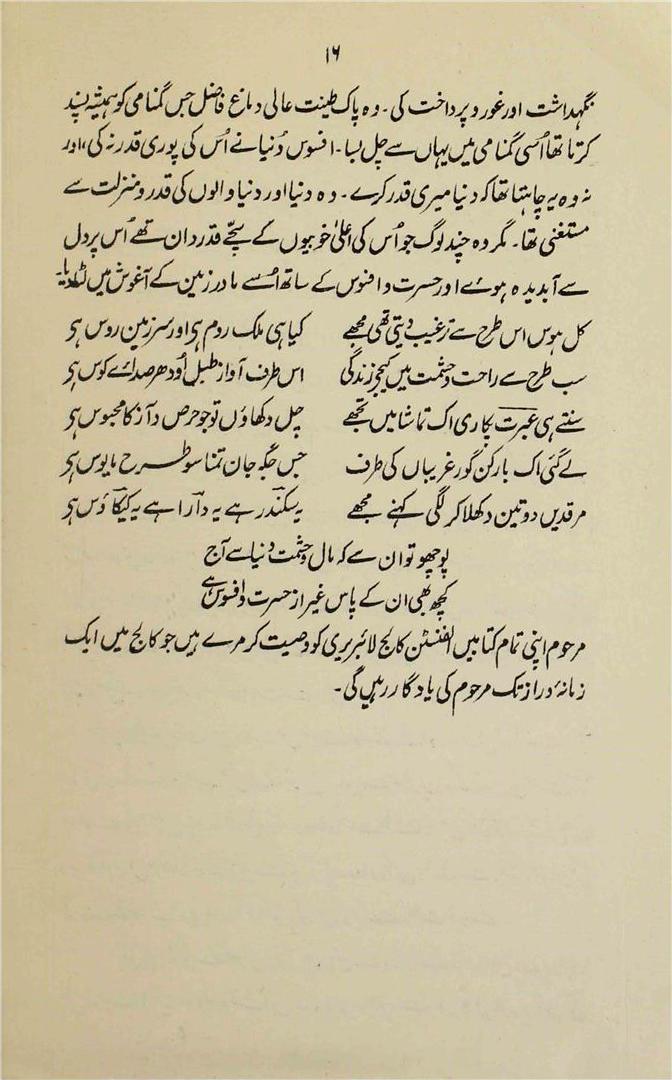 ۱۶
نگہداشت اور غور و پرداخت کی۔ وہ پاک طینت عالی دماغ فاضل جس گمنامی کو ہمیشہ پسند
کرتا تھا اُسی گمنامی میں یہاں سے چل بسا۔ افسوس دُنیا نے اُس کی پوری قدر نہ کی، اور
نہ وہ یہ چاہتا تھا کہ دنیا میری قدر کرے۔ وہ دنیا اور دنیا والوں کی قدر و منزلت سے
مستغنی تھا۔ مگر وہ چند لوگ جو اُس کی اعلیٰ خوبیوں کے سچّے قدردان تھے اُس پر دل
سے آبدیدہ ہوئے اور حسرت و افسوس کے ساتھ اُسے مادر زمین کے آغوش میں لٹا دیا۔
کل ہوس اس طرح سے ترغیب دیتی تھی مجھے کیا ہی ملک روم ہی اور سرزمین روس ہی
سب طرح سے راحت و حشمت میں کیجیے زندگی اس طرف آواز طبل اُودھر صدائے کوس ہی
سنتے ہی عبرت پکاری اک تماشا میں تجھے چل دکھاؤں تو جو حرص و آز کا محبوس ہی
لے گئی اک بار کن گورغریباں کی طرف جس جگہ جان تمنا سو طرح مایوس ہی
مرقدیں دو تین دکھلا کر لگی کہنے مجھے یہ سکندر ہے یہ دارا ہے یہ کیکاؤس ہی
پوچھو تو ان سے کہ مال و حشمت دنیا سے آج
کچھ بھی ان کے پاس غیر از حسرت و افسوس ہے
مرحوم اپنی تمام کتابیں الفنسٹن کالج لائبریری کو وصیت کر مرے ہیں جو کالج میں ایک
زمانۂ دراز تک مرحوم کی یادگار رہیں گی۔